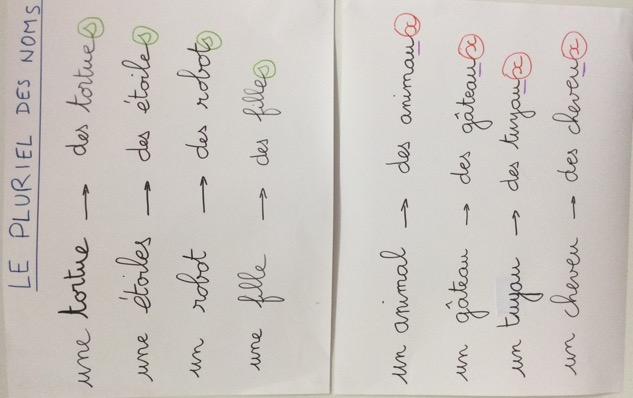 LE PLURIEL DES NOMS
une tortue → des tortues
une étoiles → des étoiles
un robot → des robots
une fille → des filles
un animal → des animaux
un gâteau → des gâteaux
un tuyau → des tuyaux
un cheveu → des cheveux